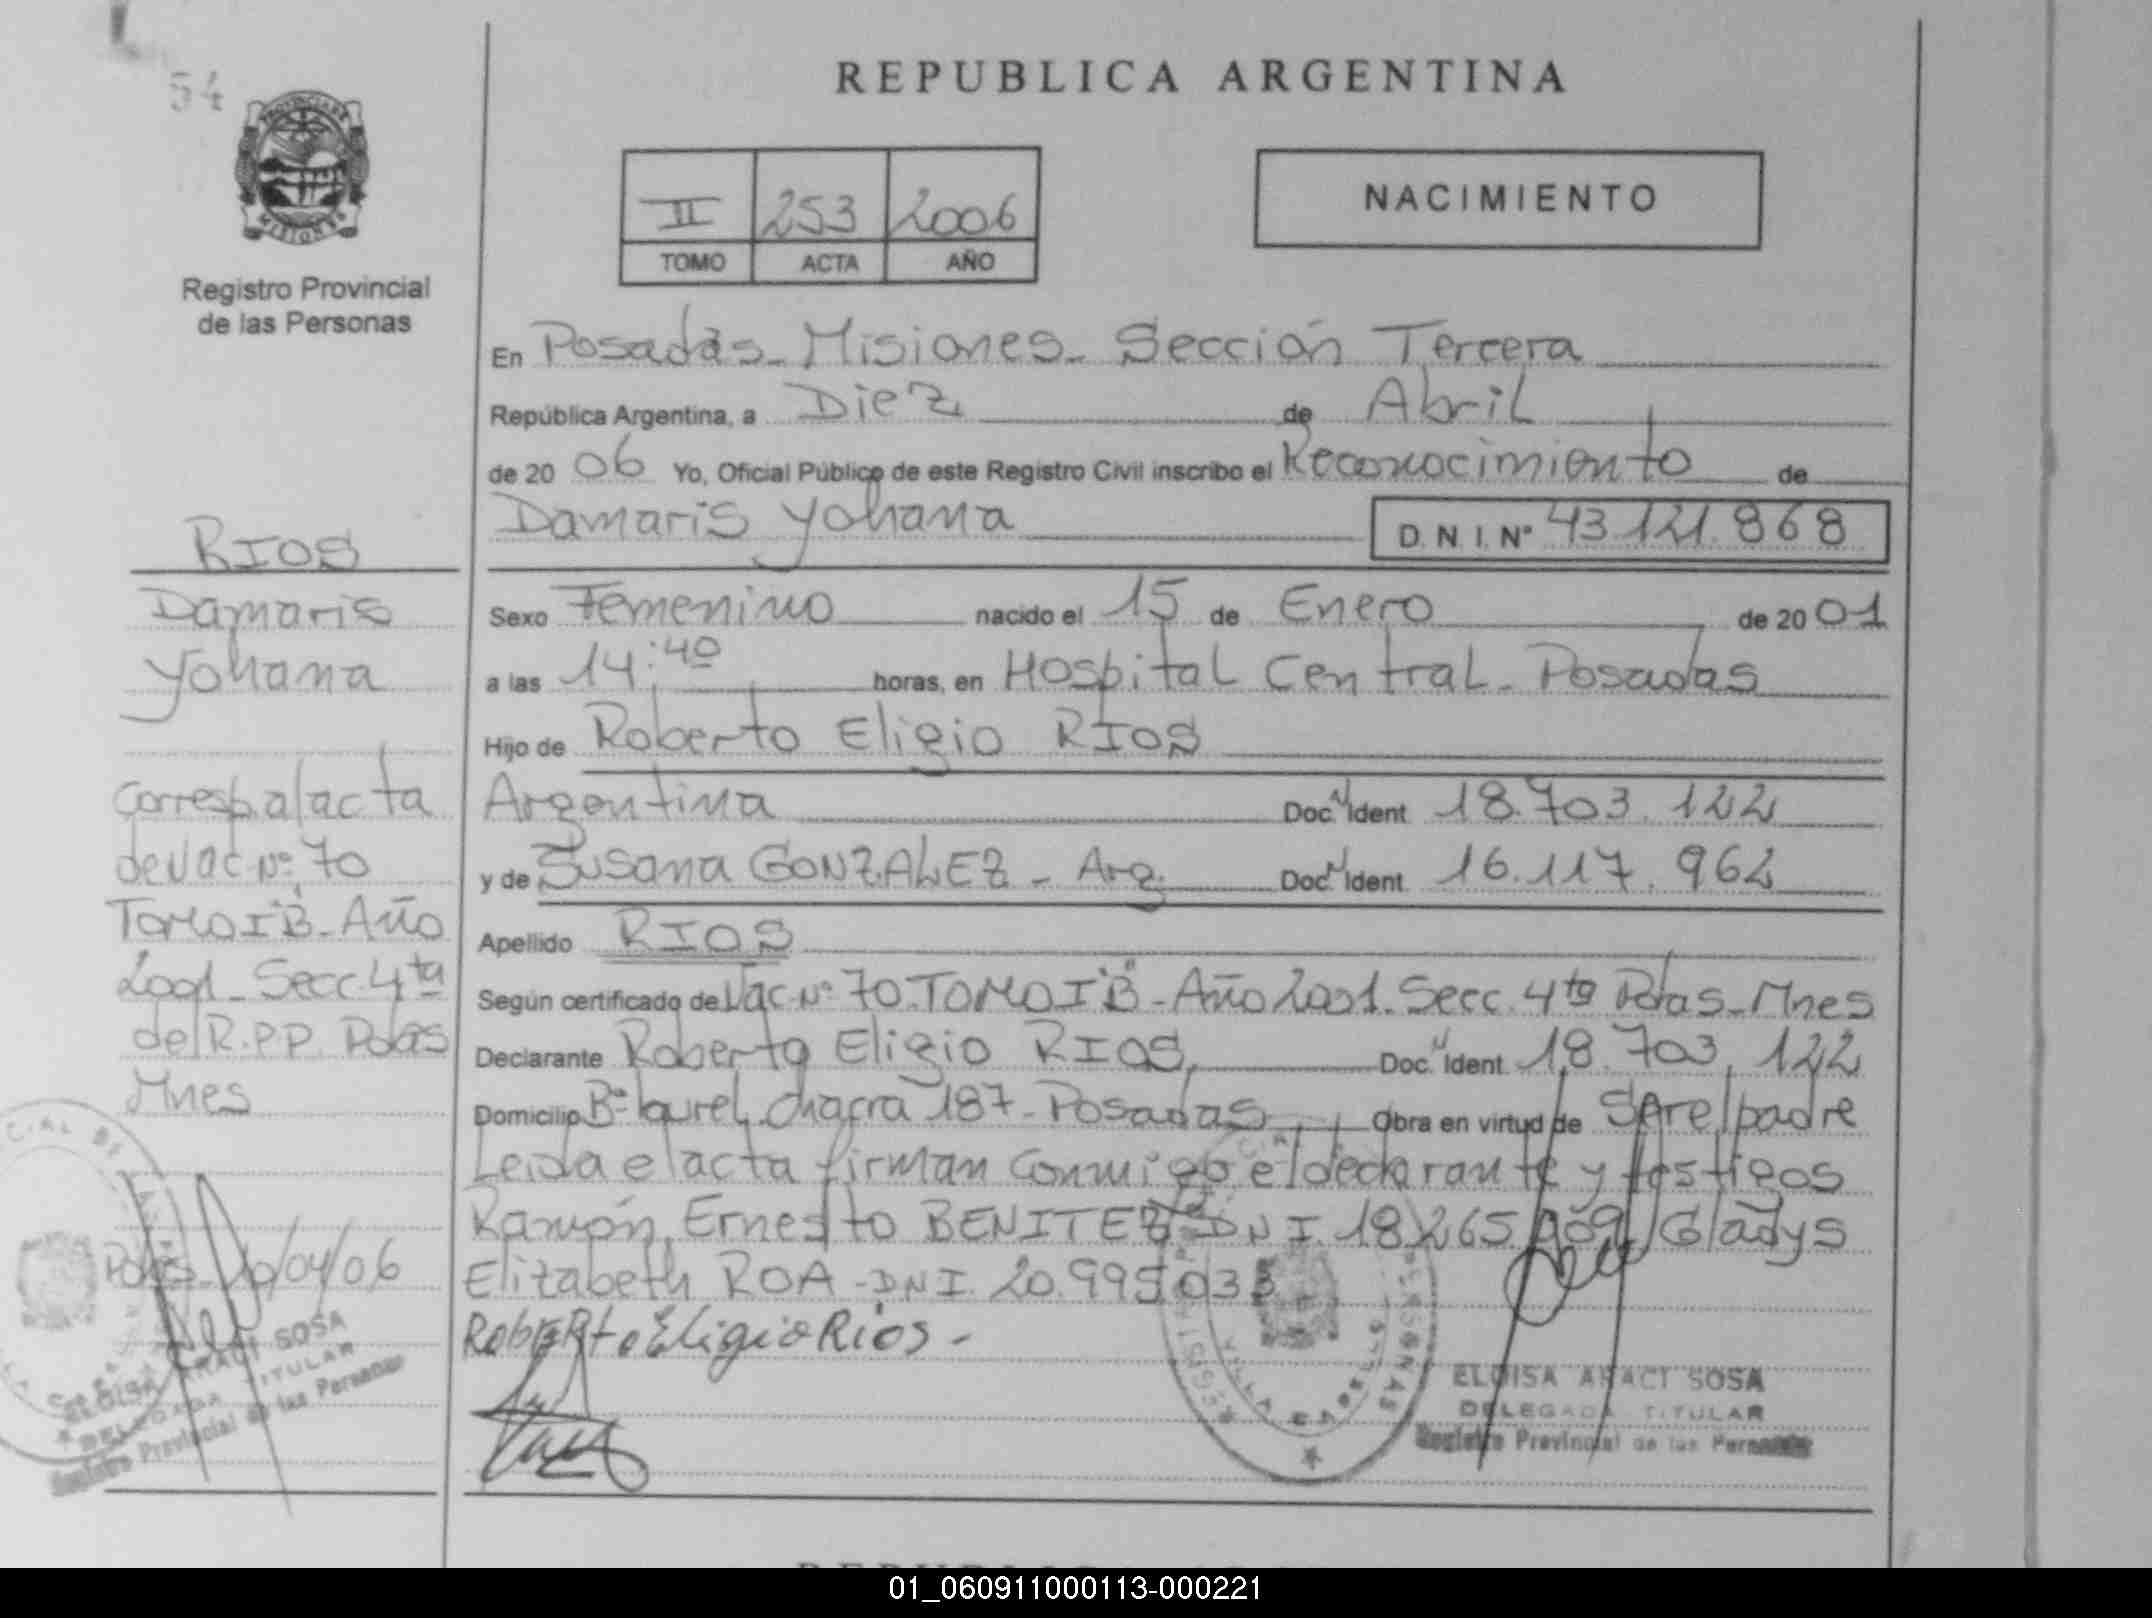 54
PROVINCIA DE
MISIONES
Registro Provincial
de las Personas
REPUBLICA ARGENTINA
II 253 2006
TOMO ACTA AÑO
NACIMIENTO
En Posadas - Misiones - Sección Tercera
República Argentina, a Diez de Abril
de 20 06 Yo, Oficial Público de este Registro Civil inscribo el Reconocimiento de
Damaris Yohana D. N. I. Nº 43.121.868
Sexo Femenino nacido el 15 de Enero de 20 01
a las 14:40 horas, en Hospital Central - Posadas
Hijo de Roberto Eligio RIOS
Argentina Doc. Ident. 18.703.122
y de Susana GONZALEZ - Arg. Doc. Ident. 16.117.962
Apellido RIOS
Según certificado de Nac. Nº 70 - TOMO I "B" - Año 2001. Secc. 4ta Pdas - Mnes
Declarante Roberto Eligio RIOS Doc. Ident. 18.703.122
Domicilio Bº laurel chacra 187 - Posadas Obra en virtud de Ser el padre
Leida el acta firman conmigo el declarante y testigos
Ramón Ernesto BENITEZ DNI. 18.265.909, Gladys
Elizabeth ROA - DNI. 20.995.033
Roberto Eligio Rios -
ELOISA ARACI SOSA
DELEGADA TITULAR
Registro Provincial de las Personas
RIOS
Damaris
Yohana
Corresp. al acta
de Nac. Nº 70
TOMO I "B" - Año
2001 - Secc. 4ta
del R.P.P. Pdas
Mnes
Pdas - 10/04/06
ELOISA ARACI SOSA
DELEGADA TITULAR
Registro Provincial de las Personas
01_060911000113-000221